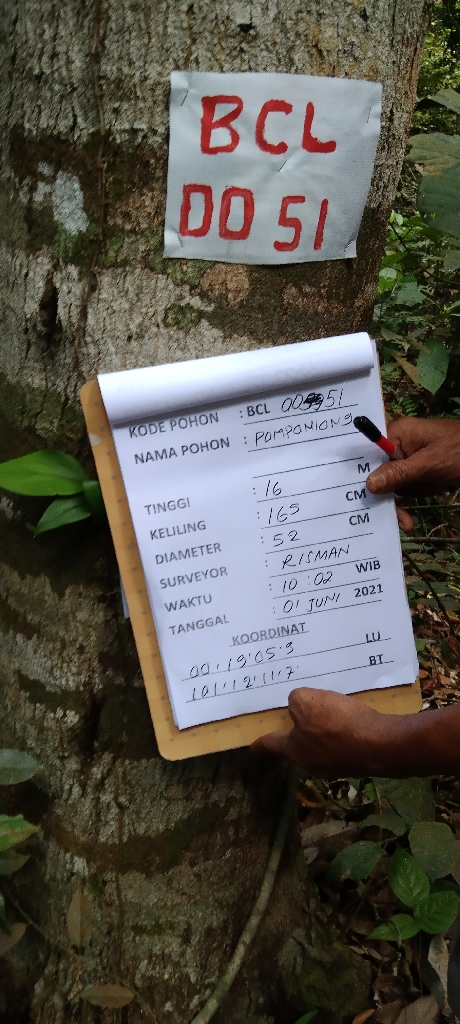 BCL
0051
KODE POHON : BCL 0051
NAMA POHON : POMPONIONG
TINGGI : 16 M
KELILING : 165 CM
DIAMETER : 52 CM
SURVEYOR : RISMAN
WAKTU : 10 : 02 WIB
TANGGAL : 01 JUNI 2021
KOORDINAT
00.19'05.9 LU
101.12'11.7 BT